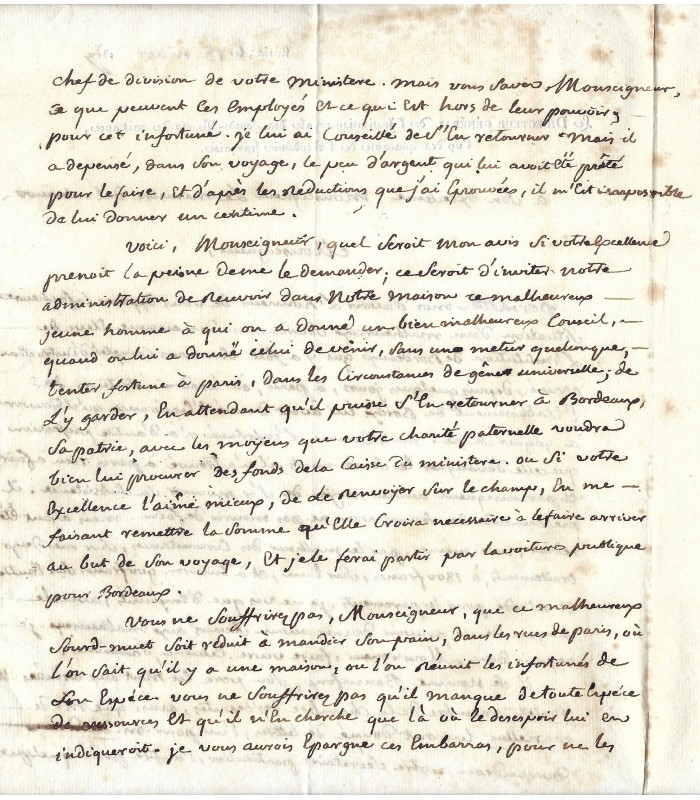 chef de division de votre ministere. mais vous savez, Monseigneur,
ce que peuvent ces Employés Et ce qui Est hors de leur pouvoir,
pour cet infortuné. je lui ai Conseillé de s'En retourner. Mais il
a depensé, dans son voyage, le peu d'argent qui lui avoit été prêté
pour le faire, Et d'après les Réductions que j'ai Eprouvées, il m'Est impossible
de lui donner un centime.
voici, Monseigneur, quel seroit mon avis si votre Excellence
prenoit la peine de me le demander; ce seroit d'inviter notre
administration de recevoir dans Notre maison ce malheureux
jeune homme à qui on a donné un bien malheureux Conseil,
quand on lui a donné celui de venir, sans un métier quelconque,
tenter fortune à paris, dans les Circonstances de gêne universelle; de
l'y garder, En attendant qu'il puisse s'En retourner à Bordeaux,
sa patrie, avec les moyens que votre charité paternelle voudra
bien lui procurer des fonds de la Caisse du ministere. ou si votre
Excellence l'aime mieux, de le renvoyer sur le champ, En me
faisant remettre la somme qu'Elle Croira necessaire à le faire arriver
au but de son voyage, Et je le ferai partir par la voiture publique
pour Bordeaux.
vous ne souffrirez pas, Monseigneur, que ce malheureux
sourd-muet soit réduit à mandier son pain, dans les rues de paris, où
l'on sait qu'il y a une maison, où l'on Réunit les infortunés de
son Espéce. vous ne souffrirez pas qu'il manque de toute Espéce
de ressources Et qu'il n'En cherche que là où le desespoir lui en
indiqueroit. je vous aurois Epargné ces Embarras, pour ne les